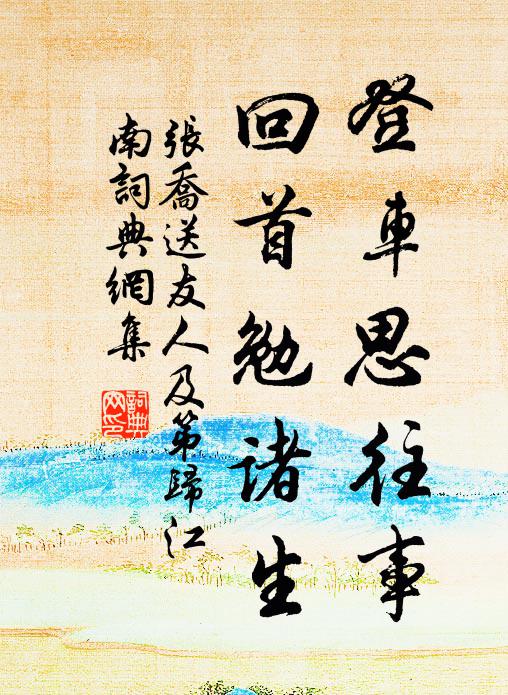 登车思往事
回首勉诸生
張喬送友人及第歸江
南詞典網集
詞典
网印